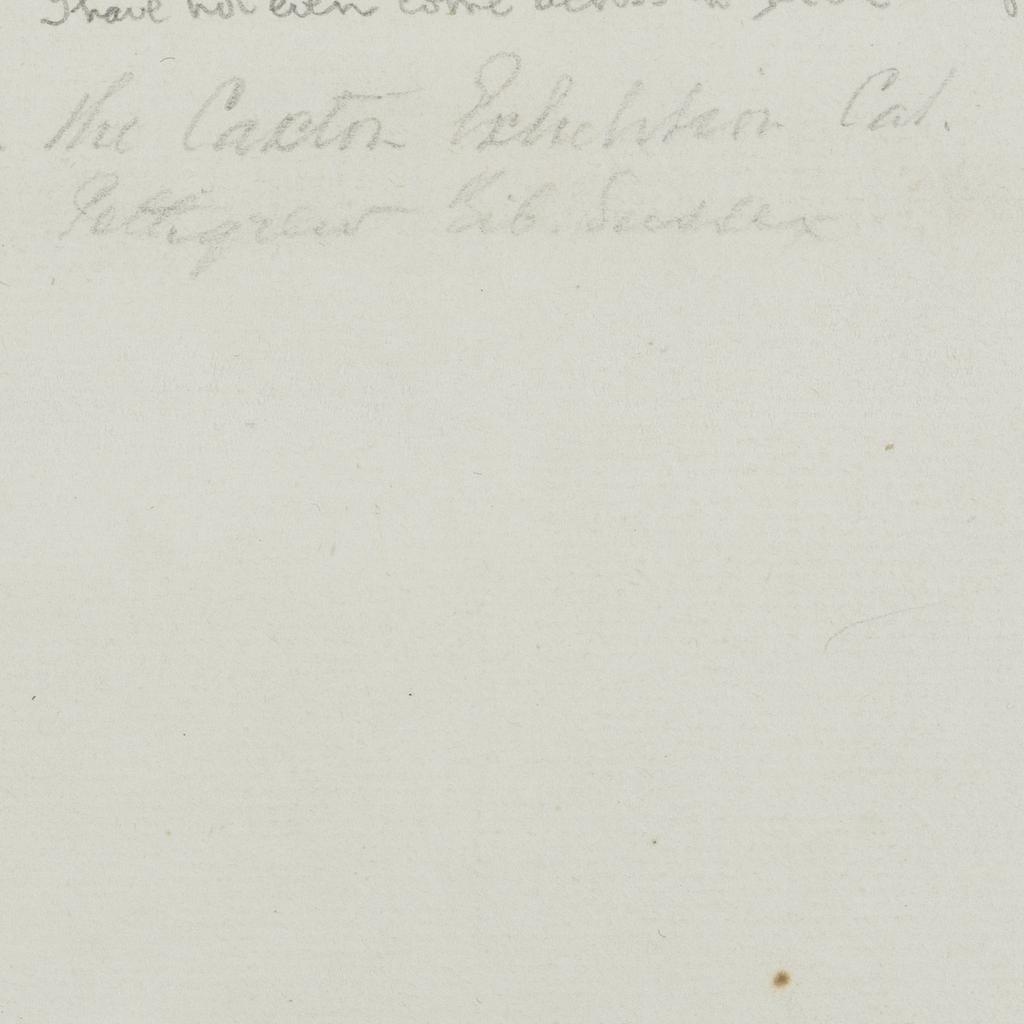 I have not even come across
The Caxton Exhibition Cat.
Pettigrew Bib. Sussex